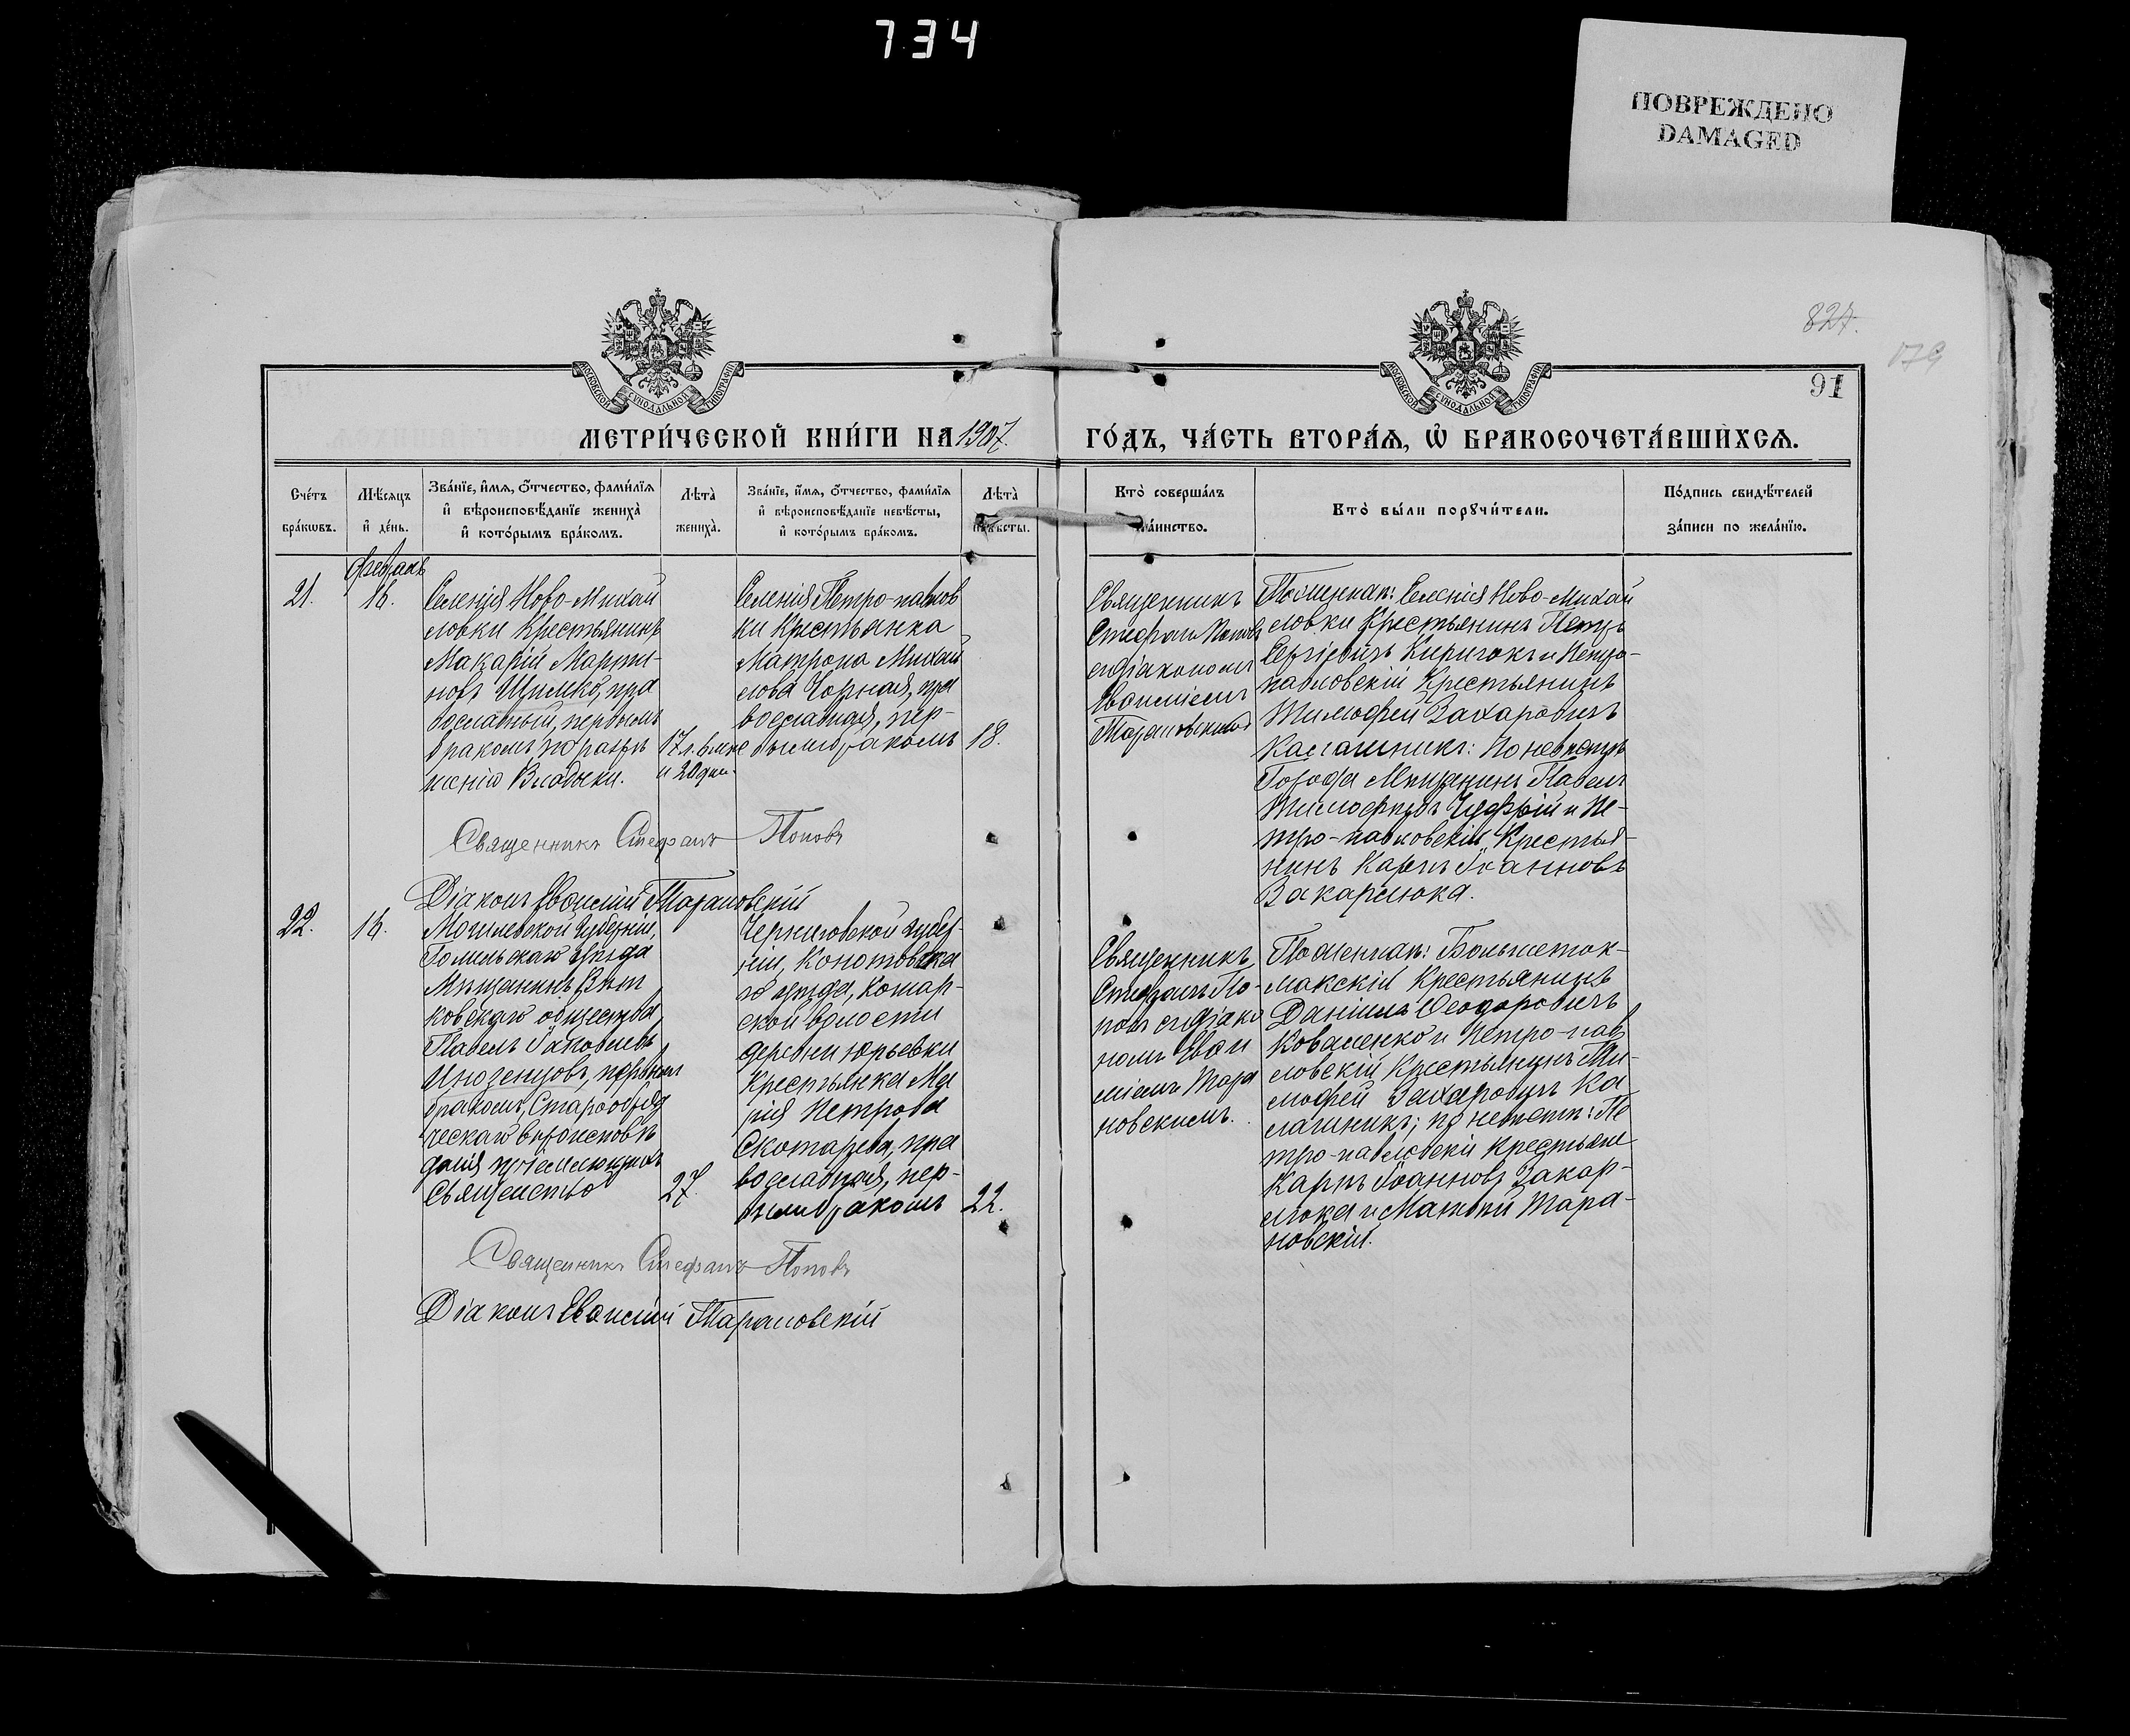 734
ПОВРЕЖДЕНО
DAMAGED
827.
179
91
МОСКОВСКОЙ СѴНОДАЛЬНОЙ ТИПОГРАФІИ
МОСКОВСКОЙ СѴНОДАЛЬНОЙ ТИПОГРАФІИ
МЕТРИ́ЧЕСКОЙ КНИ́ГИ НА 1907.
ГО́ДЪ, ЧА́СТЬ ВТОРА́Ѧ, Ѡ҆ БРАКОСОЧЕТА́ВШИХСѦ.
Сче́тъ
бра́кѡвъ.
Мѣ́сяцъ
и҆ де́нь.
Зва́нїе, и҆́мѧ, о҆́тчество, фами́лїѧ
и҆ вѣроисповѣ́данїе жениха̀
и҆ кото́рымъ бра́комъ.
Лѣта̀
жениха̀.
Зва́нїе, и҆́мѧ, о҆́тчество, фами́лїѧ
и҆ вѣроисповѣ́данїе невѣ́сты,
и҆ кото́рымъ бра́комъ.
Лѣта̀
невѣсты.
Кто̀ соверша́лъ
та́инство.
Кто̀ бы́ли порꙋчи́тели.
По́дпись свидѣ́телей
за́писи по жела́нїю.
21.
16.
Селенія Ново-Михай
ловки Крестьянинъ
Макарій Марти-
новъ Щимко, пра
вославный, первымъ
бракомъ по разрѣ
шенію Владыки.
17 л. 6 мѣс
и 20 дн.
Селенія Петро-павлов
ки Крестьянка
Матрона Михаи
лова Чорная, пра
вославная, пер-
вымъ бракомъ
18.
Священникъ
Стефанъ Поповъ
съ діакономъ
Тарановскимъ
По женихѣ: Селенія Ново-Михай
ловки Крестьянинъ Петръ
Сергіевичъ Киричокъ и Петро-
павловскій Крестьянинъ
Тимофей Захаровичъ
Калашникъ: По невѣстѣ
Города Мещанинъ Павелъ
Тимофѣевъ и Пе-
тро-павловскій Крестья-
нинъ Карпъ Іоанновъ
Закарлюка.
Священникъ Стефанъ Поповъ
Діаконъ Тарановскій
22.
16.
Могилевской Губерніи,
Гомельскаго уѣзда
Мѣщанинъ Вѣт
ковскаго общества
Павелъ Іаковлевъ
первымъ
бракомъ, Старообряд
ческаго вѣроисповѣ
данія пріемлющихъ
Священство
27.
Черниговской губер-
ніи, Конотопска
го уѣзда,
ской волости
деревни Юрьевки
Крестьянка Ма
рія Петрова
Скотарева, пра
вославная, пер-
вымъ бракомъ
22.
Священникъ
Стефанъ По-
повъ съ діако
номъ
Тара
новскимъ.
По женихѣ: Большеток-
макскій Крестьянинъ
Даніилъ Ѳеодоровичъ
Коваленко и Петро-пав
ловскій Крестьянинъ Ти-
мофей Захаровичъ Ка
лашникъ; по невѣстѣ: Пе
тро-павловскіе Крестьяне
Карпъ Іоанновъ Закар-
люка и Матѳій Тара-
новскій.
Священникъ Стефанъ Поповъ
Діаконъ Тарановскій